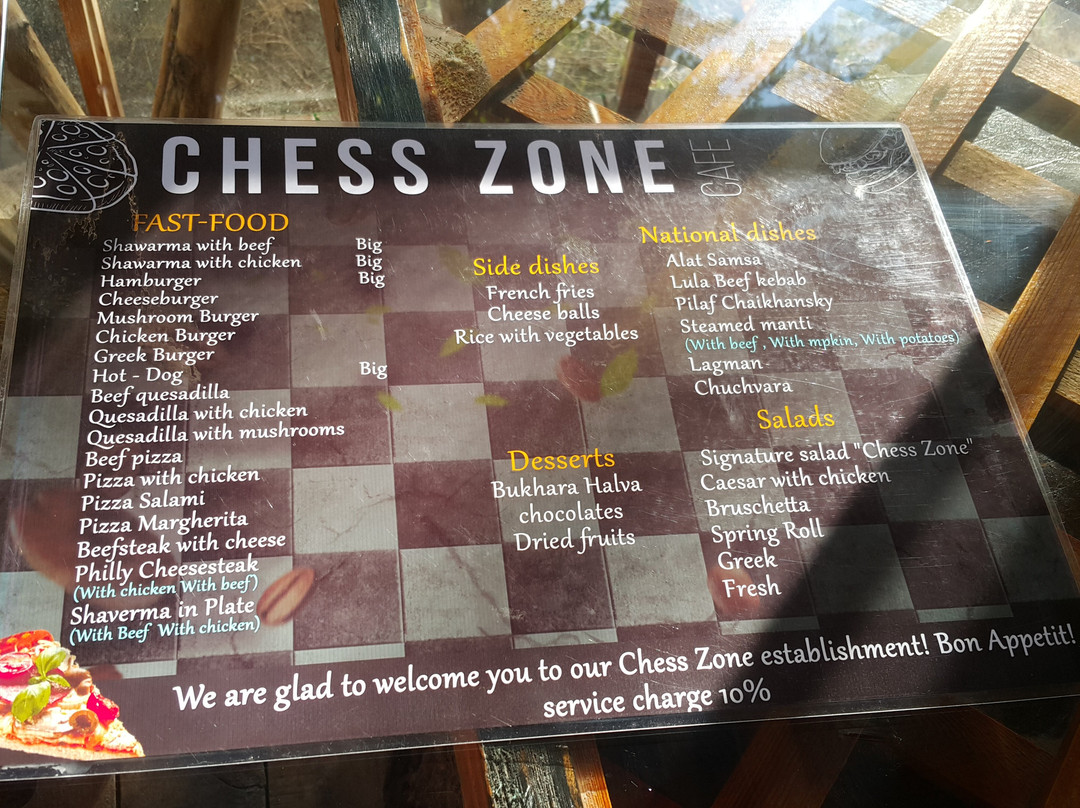 CHESS ZONE CAFE
FAST-FOOD
Shawarma with beef Big
Shawarma with chicken Big
Hamburger Big
Cheeseburger
Mushroom Burger
Chicken Burger
Greek Burger
Hot - Dog Big
Beef quesadilla
Quesadilla with chicken
Quesadilla with mushrooms
Beef pizza
Pizza with chicken
Pizza Salami
Pizza Margherita
Beefsteak with cheese
Philly Cheesesteak
(With chicken With beef)
Shaverma in Plate
(With Beef With chicken)
Side dishes
French fries
Cheese balls
Rice with vegetables
Desserts
Bukhara Halva
chocolates
Dried fruits
National dishes
Alat Samsa
Lula Beef kebab
Pilaf Chaikhansky
Steamed manti
(With beef , With mpkin, With potatoes)
Lagman
Chuchvara
Salads
Signature salad "Chess Zone"
Caesar with chicken
Bruschetta
Spring Roll
Greek
Fresh
We are glad to welcome you to our Chess Zone establishment! Bon Appetit!
service charge 10%